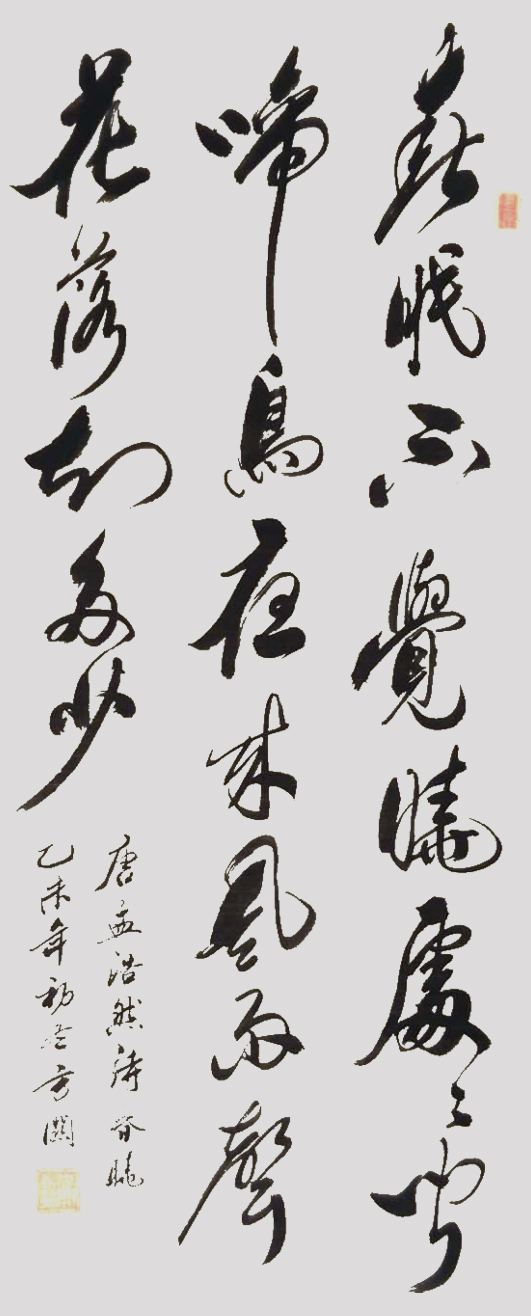 春眠不覺曉處々聞
啼鳥夜来風雨聲
花落知多少
唐孟浩然詩春曉
乙未年初冬方闊